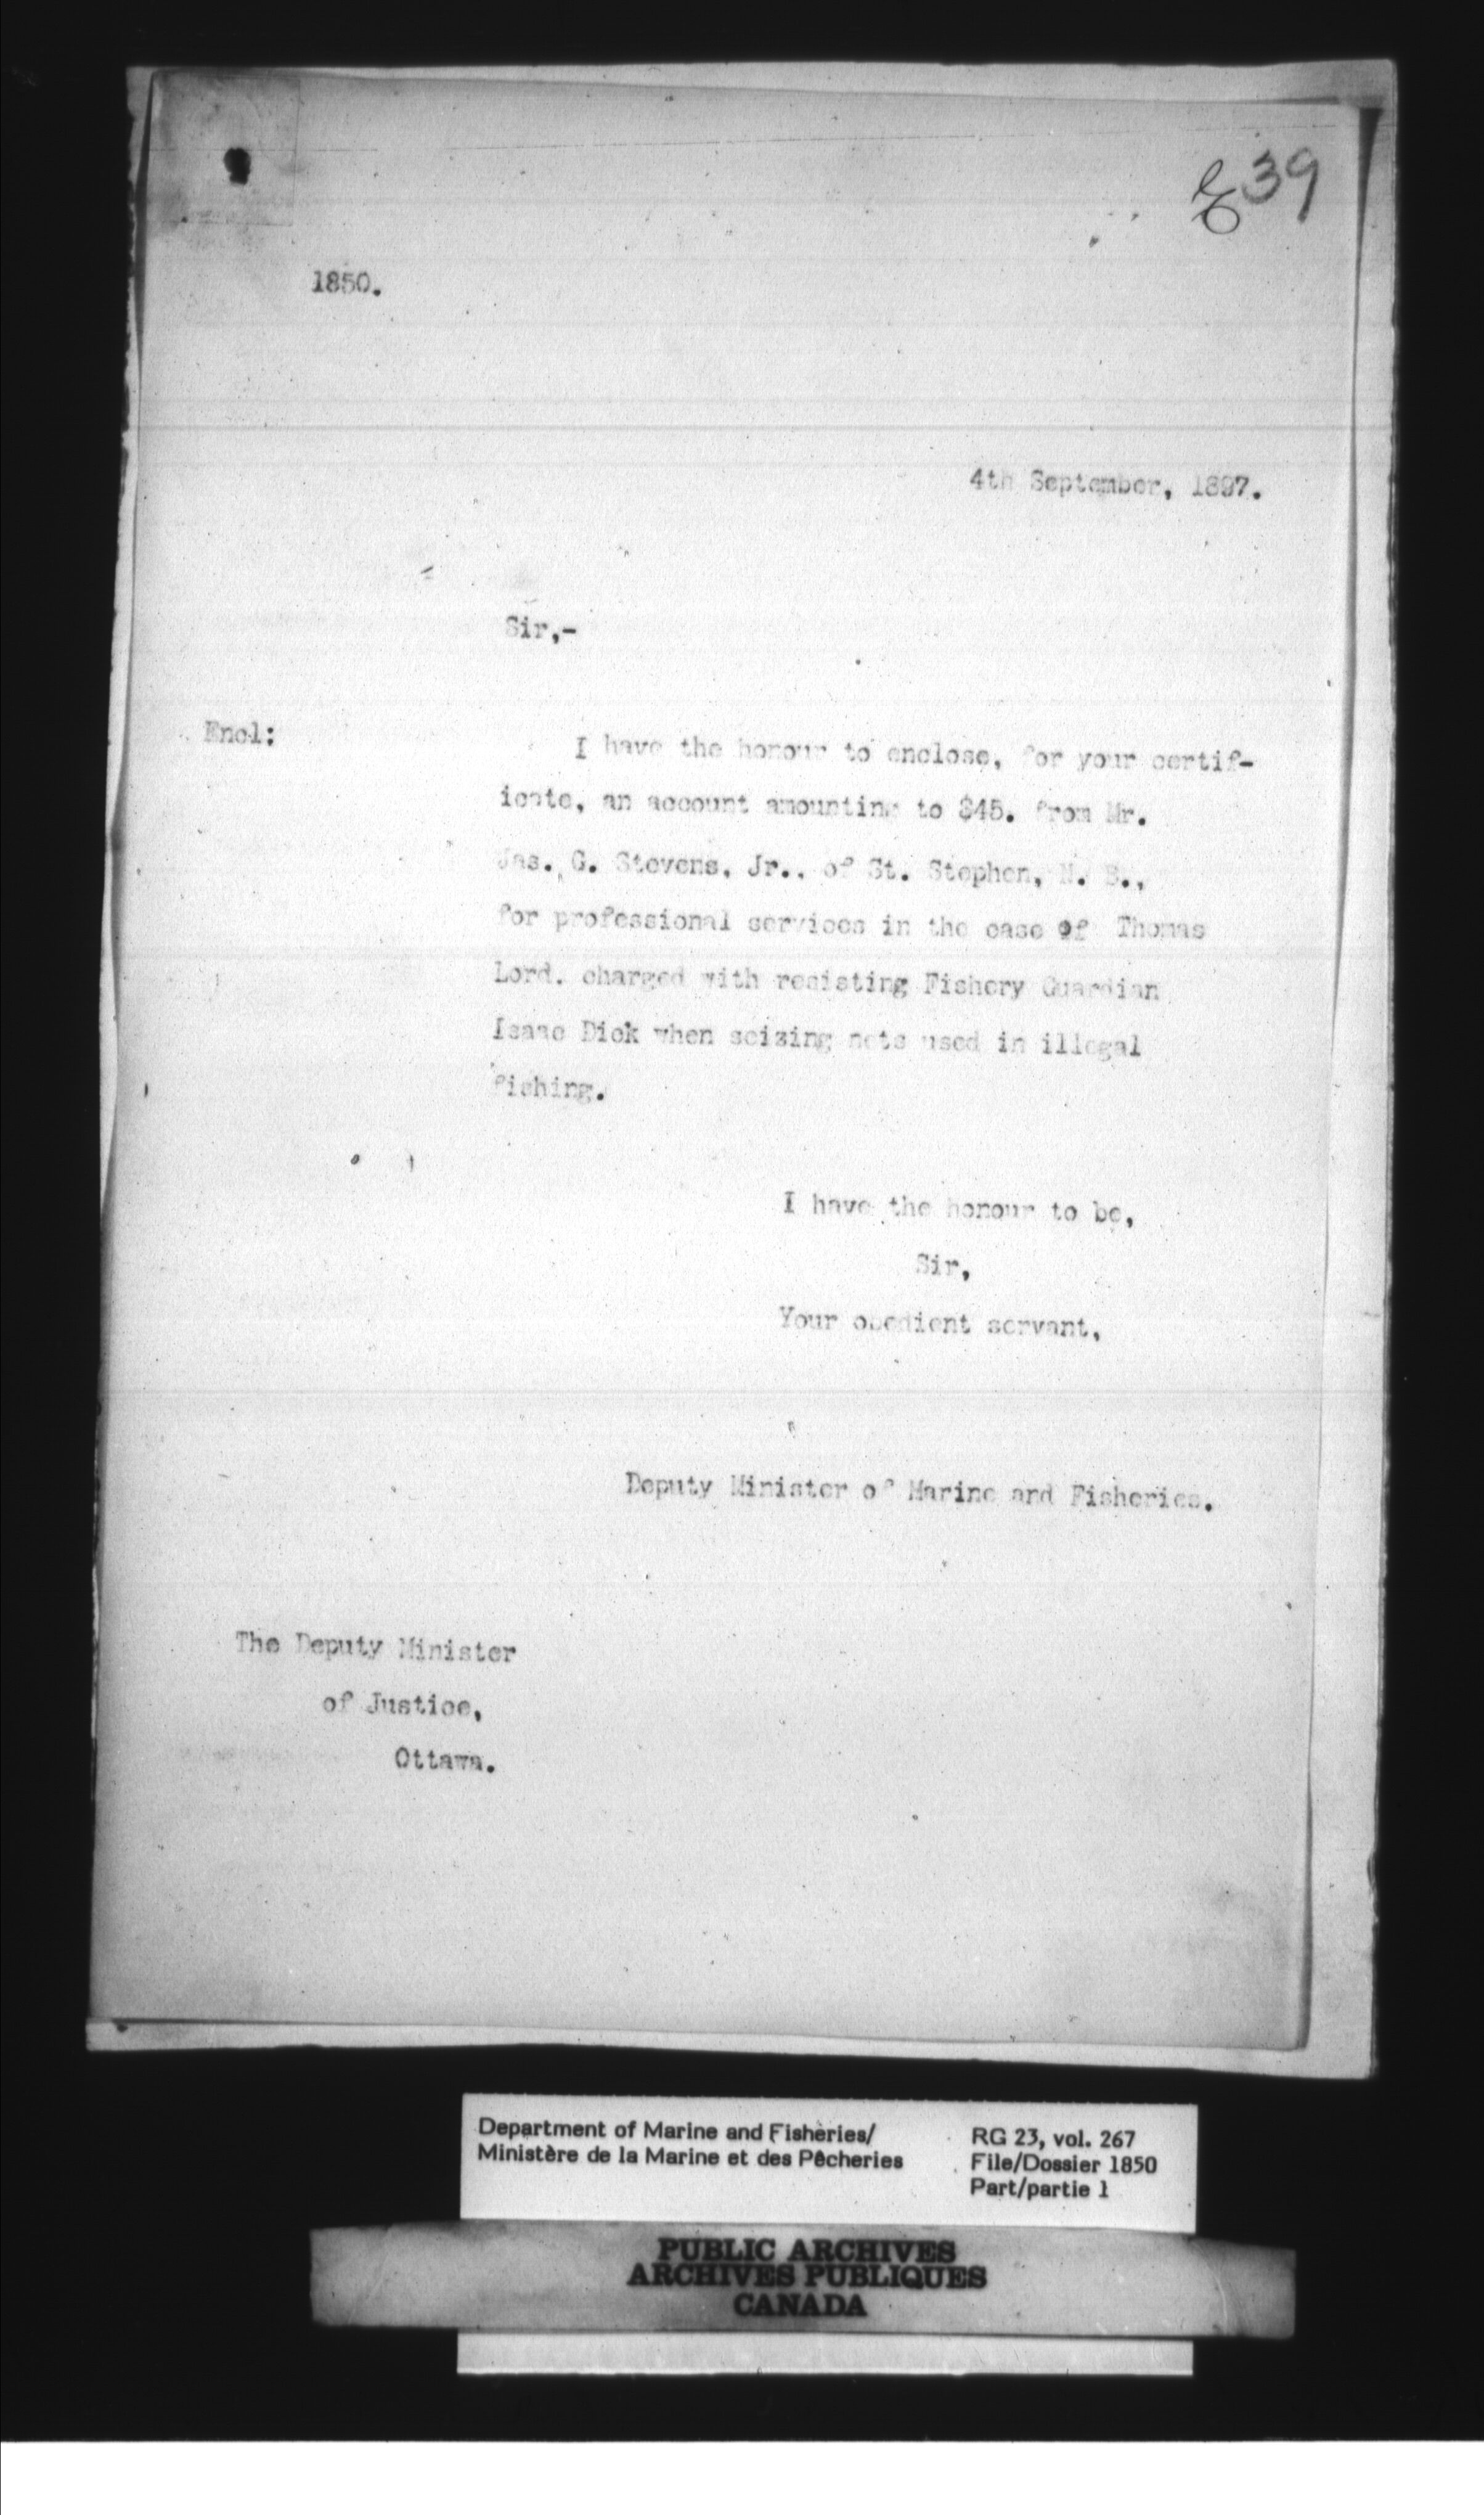 39
1850.
4th September, 1897.
Sir,-
Encl:
I have the honour to enclose, for your certif-
icate, an account amounting to $45. from Mr.
Jas. G. Stevens, Jr., of St. Stephen, N. B.,
for professional services in the case of Thomas
Lord, charged with resisting Fishery Guardian
Isaac Dick when seizing nets used in illegal
fishing.
I have the honour to be,
Sir,
Your obedient servant,
Deputy Minister of Marine and Fisheries.
The Deputy Minister
of Justice,
Ottawa.
Department of Marine and Fisheries/
Ministère de la Marine et des Pêcheries
RG 23, vol. 267
File/Dossier 1850
Part/partie 1
PUBLIC ARCHIVES
ARCHIVES PUBLIQUES
CANADA